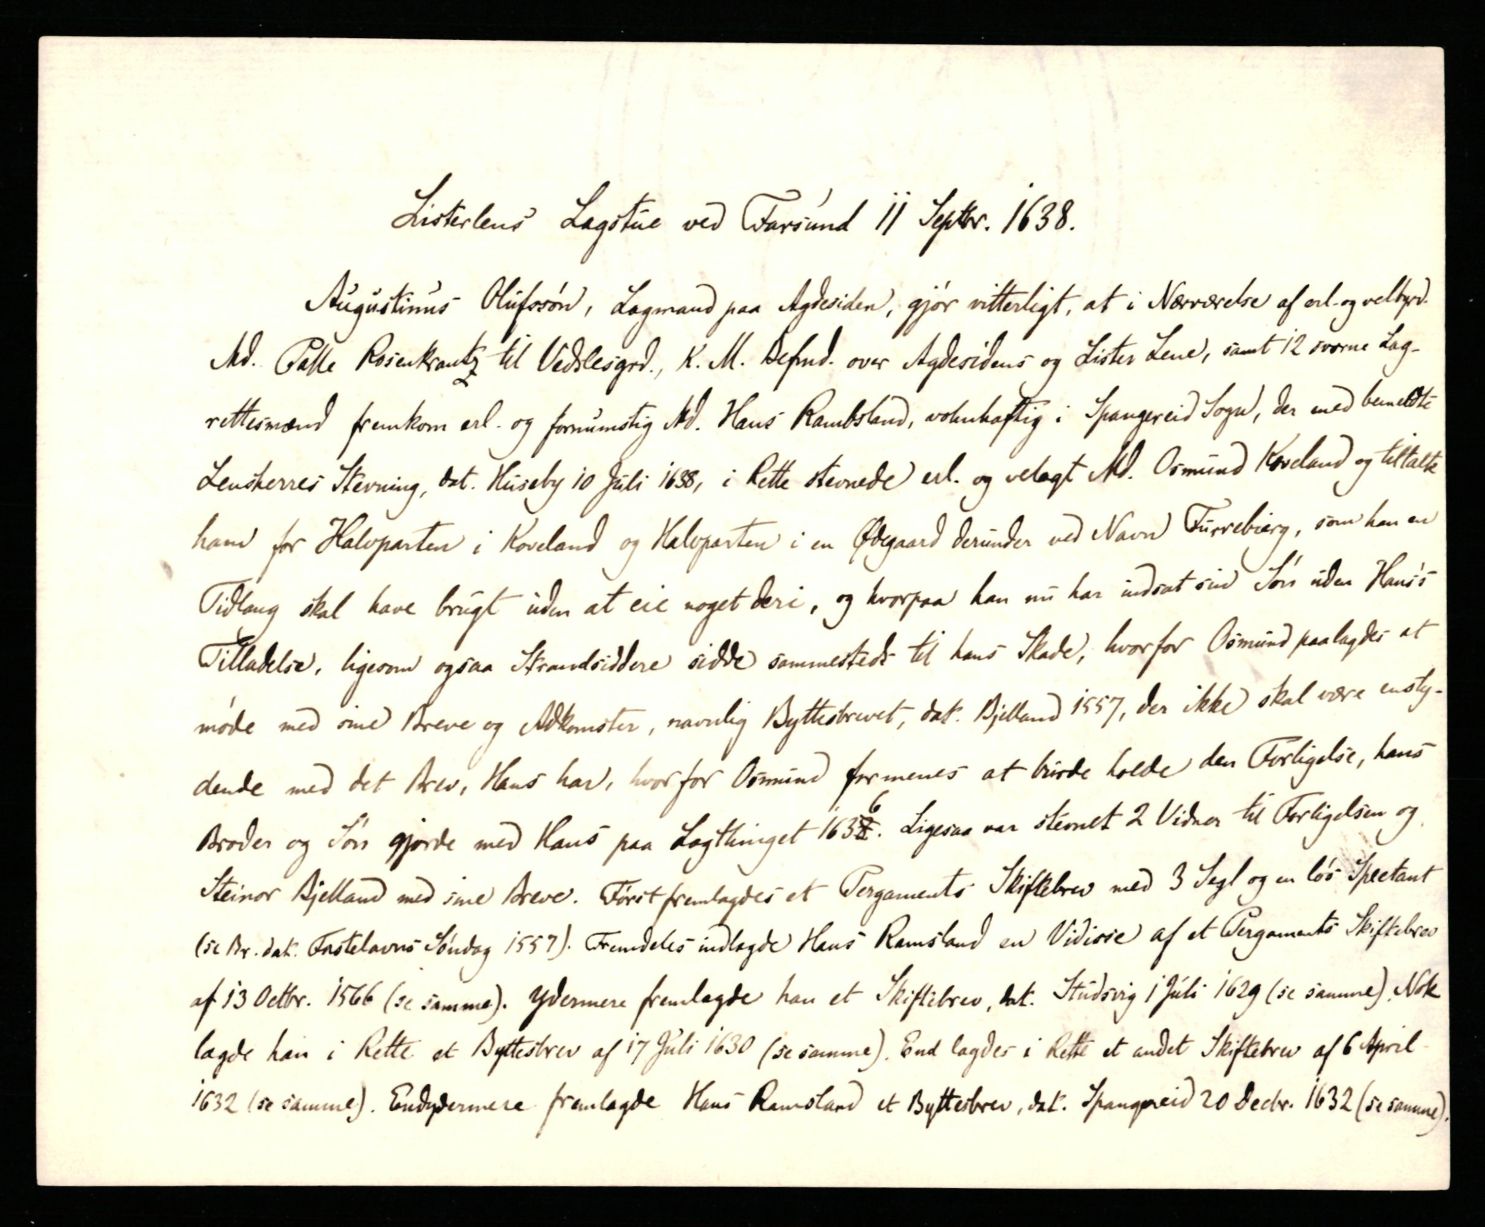 Listerlens Lagstue ved Farsund 11 Septbr. 1638.
Augustinus Olufssön, Lagmand paa Agdesiden, gjör vitterligt, at i Nærværelse af erl. og velbyrd.
Md. Palle Rosenkrantz til Vedslesgrd., K. M. Befmd. over Agdesidens og Lister Lene, samt 12 svorne Lag-
rettesmænd fremkom erl. og fornumstig Md. Hans Rambsland, wohnhaftig i Spangereid Sogn, der med bemeldte
Lensherres Stevning, dat. Huseby 10 Juli 1638, i Rette stevnede erl. og velagt Md. Osmund Koveland og tiltalte
ham for Halvparten i Koveland og Halvparten i en Ødegaard derunder ved Navn Furrebierg, som han en
Tidlang skal have brugt uden at eie noget deri, og hvorpaa han nu har indsat sin Sön uden Hans's
Tilladelse, ligesom ogsaa Strandsiddere sidde sammesteds til hans Skade, hvorfor Osmund paalagdes at
möde med sine Breve og Adkomster, navnlig Byttesbrevet, dat. Bjelland 1557, der ikke skal være enstly-
dende med det Brev, Hans har, hvorfor Osmund formenes at burde holde den Forligelse, hans
Broder og Sön gjorde med Hans paa Lagthinget 1636. Ligesaa var stevnet 2 Vidner til Forligelsen og
Steinor Bjelland med sine Breve. Först fremlagdes et Pergaments Skiftebrev med 3 Segl og en lös Spectant
(se Br. dat. Fastelavns Söndag 1557). Fremdeles indlagde Hans Ramsland en Vidisse af et Pergaments Skiftebrev
af 13 Octbr. 1566 (se samme). Ydermere fremlagde han et Skiftebrev, dat. Studsvig 1 Juli 1629 (se samme). Nok
lagde han i Rette et Byttesbrev af 17 Juli 1630 (se samme). End lagdes i Rette et andet Skiftebrev af 6 April
1632 (se samme). Endydermere fremlagde Hans Ramsland et Byttesbrev, dat. Spangereid 20 Decbr. 1632 (se samme).